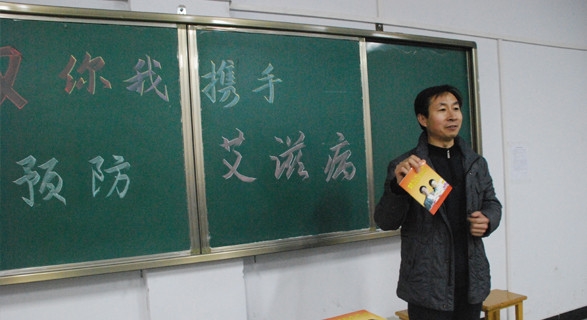 你我携手
预防艾滋病